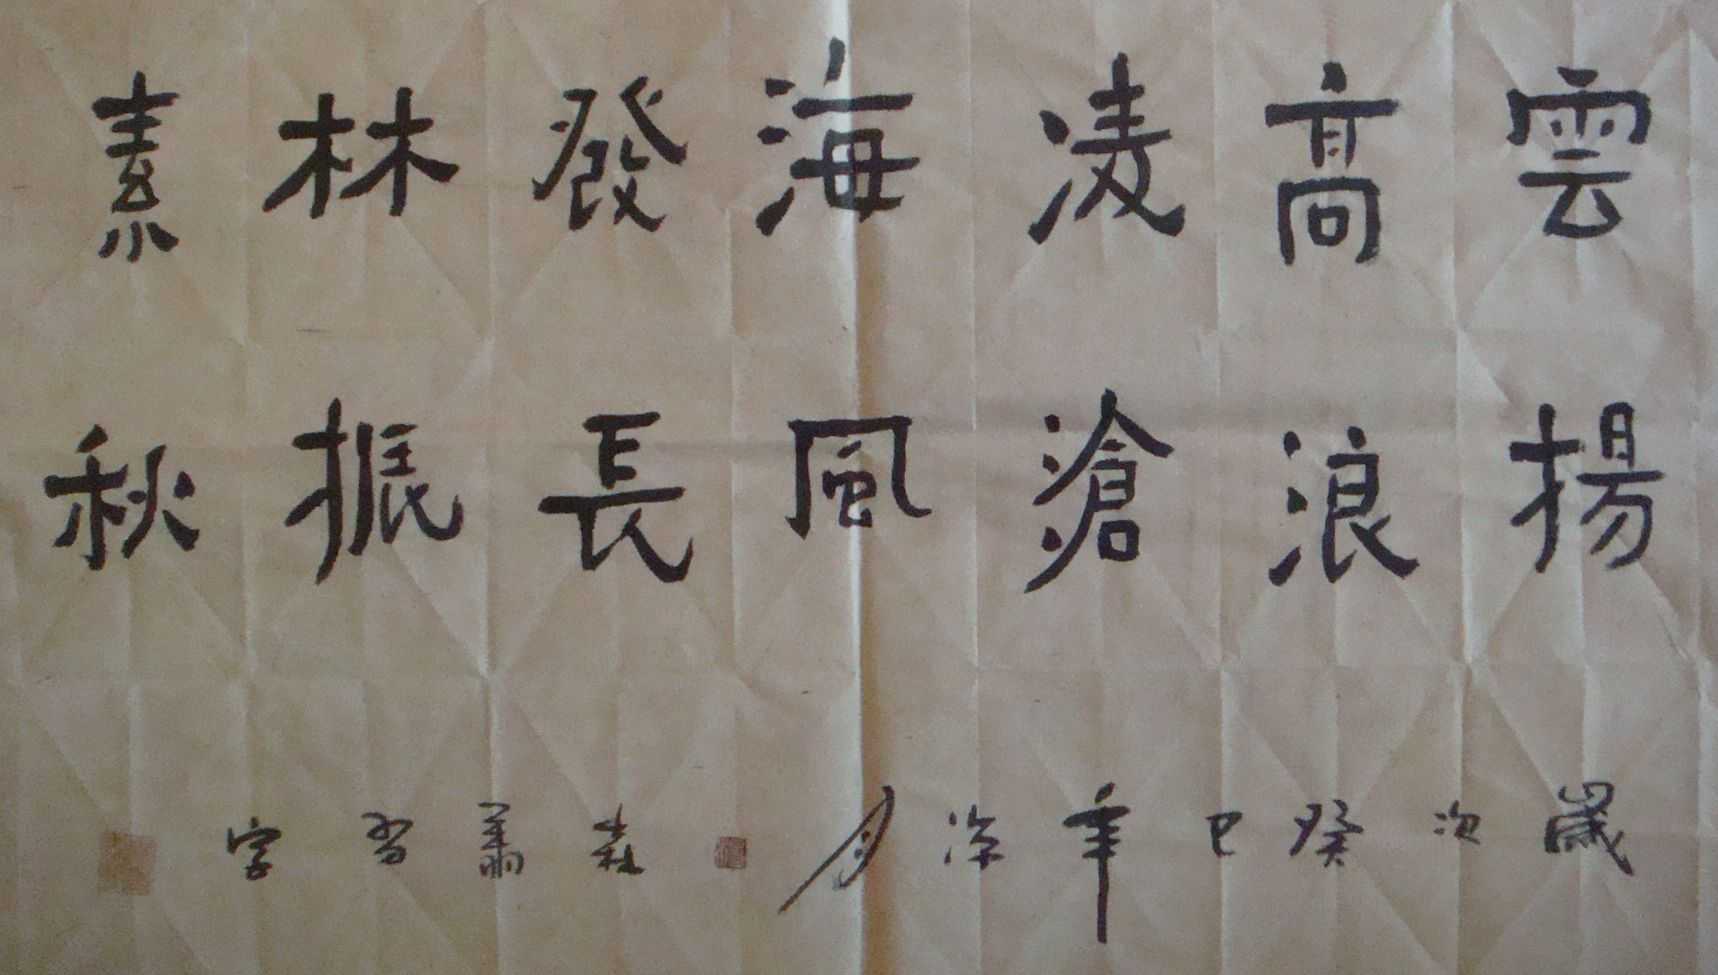 雲揚
高浪
凌滄
海風
發長
林振
素秋
歲次癸巳年涂月
森蕭習字